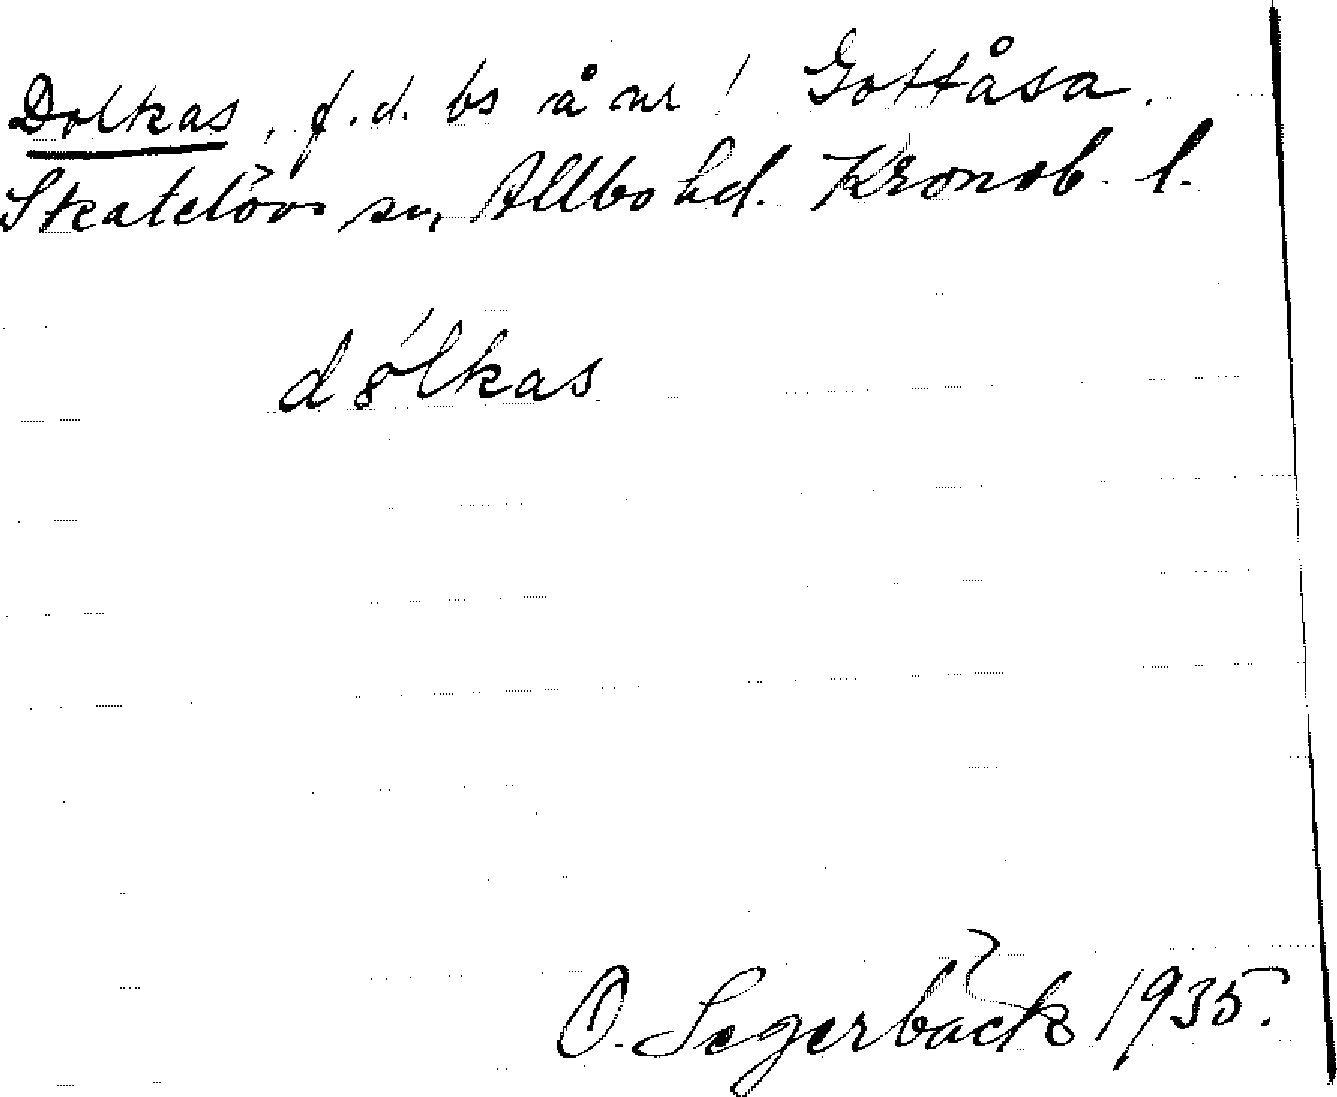 Dolkas, f.d. bs å nr 1 Gottåsa.
Skatelövs sn, Allbo hd. Kronob. l.
dólkas
O. Segerbäck 1935.